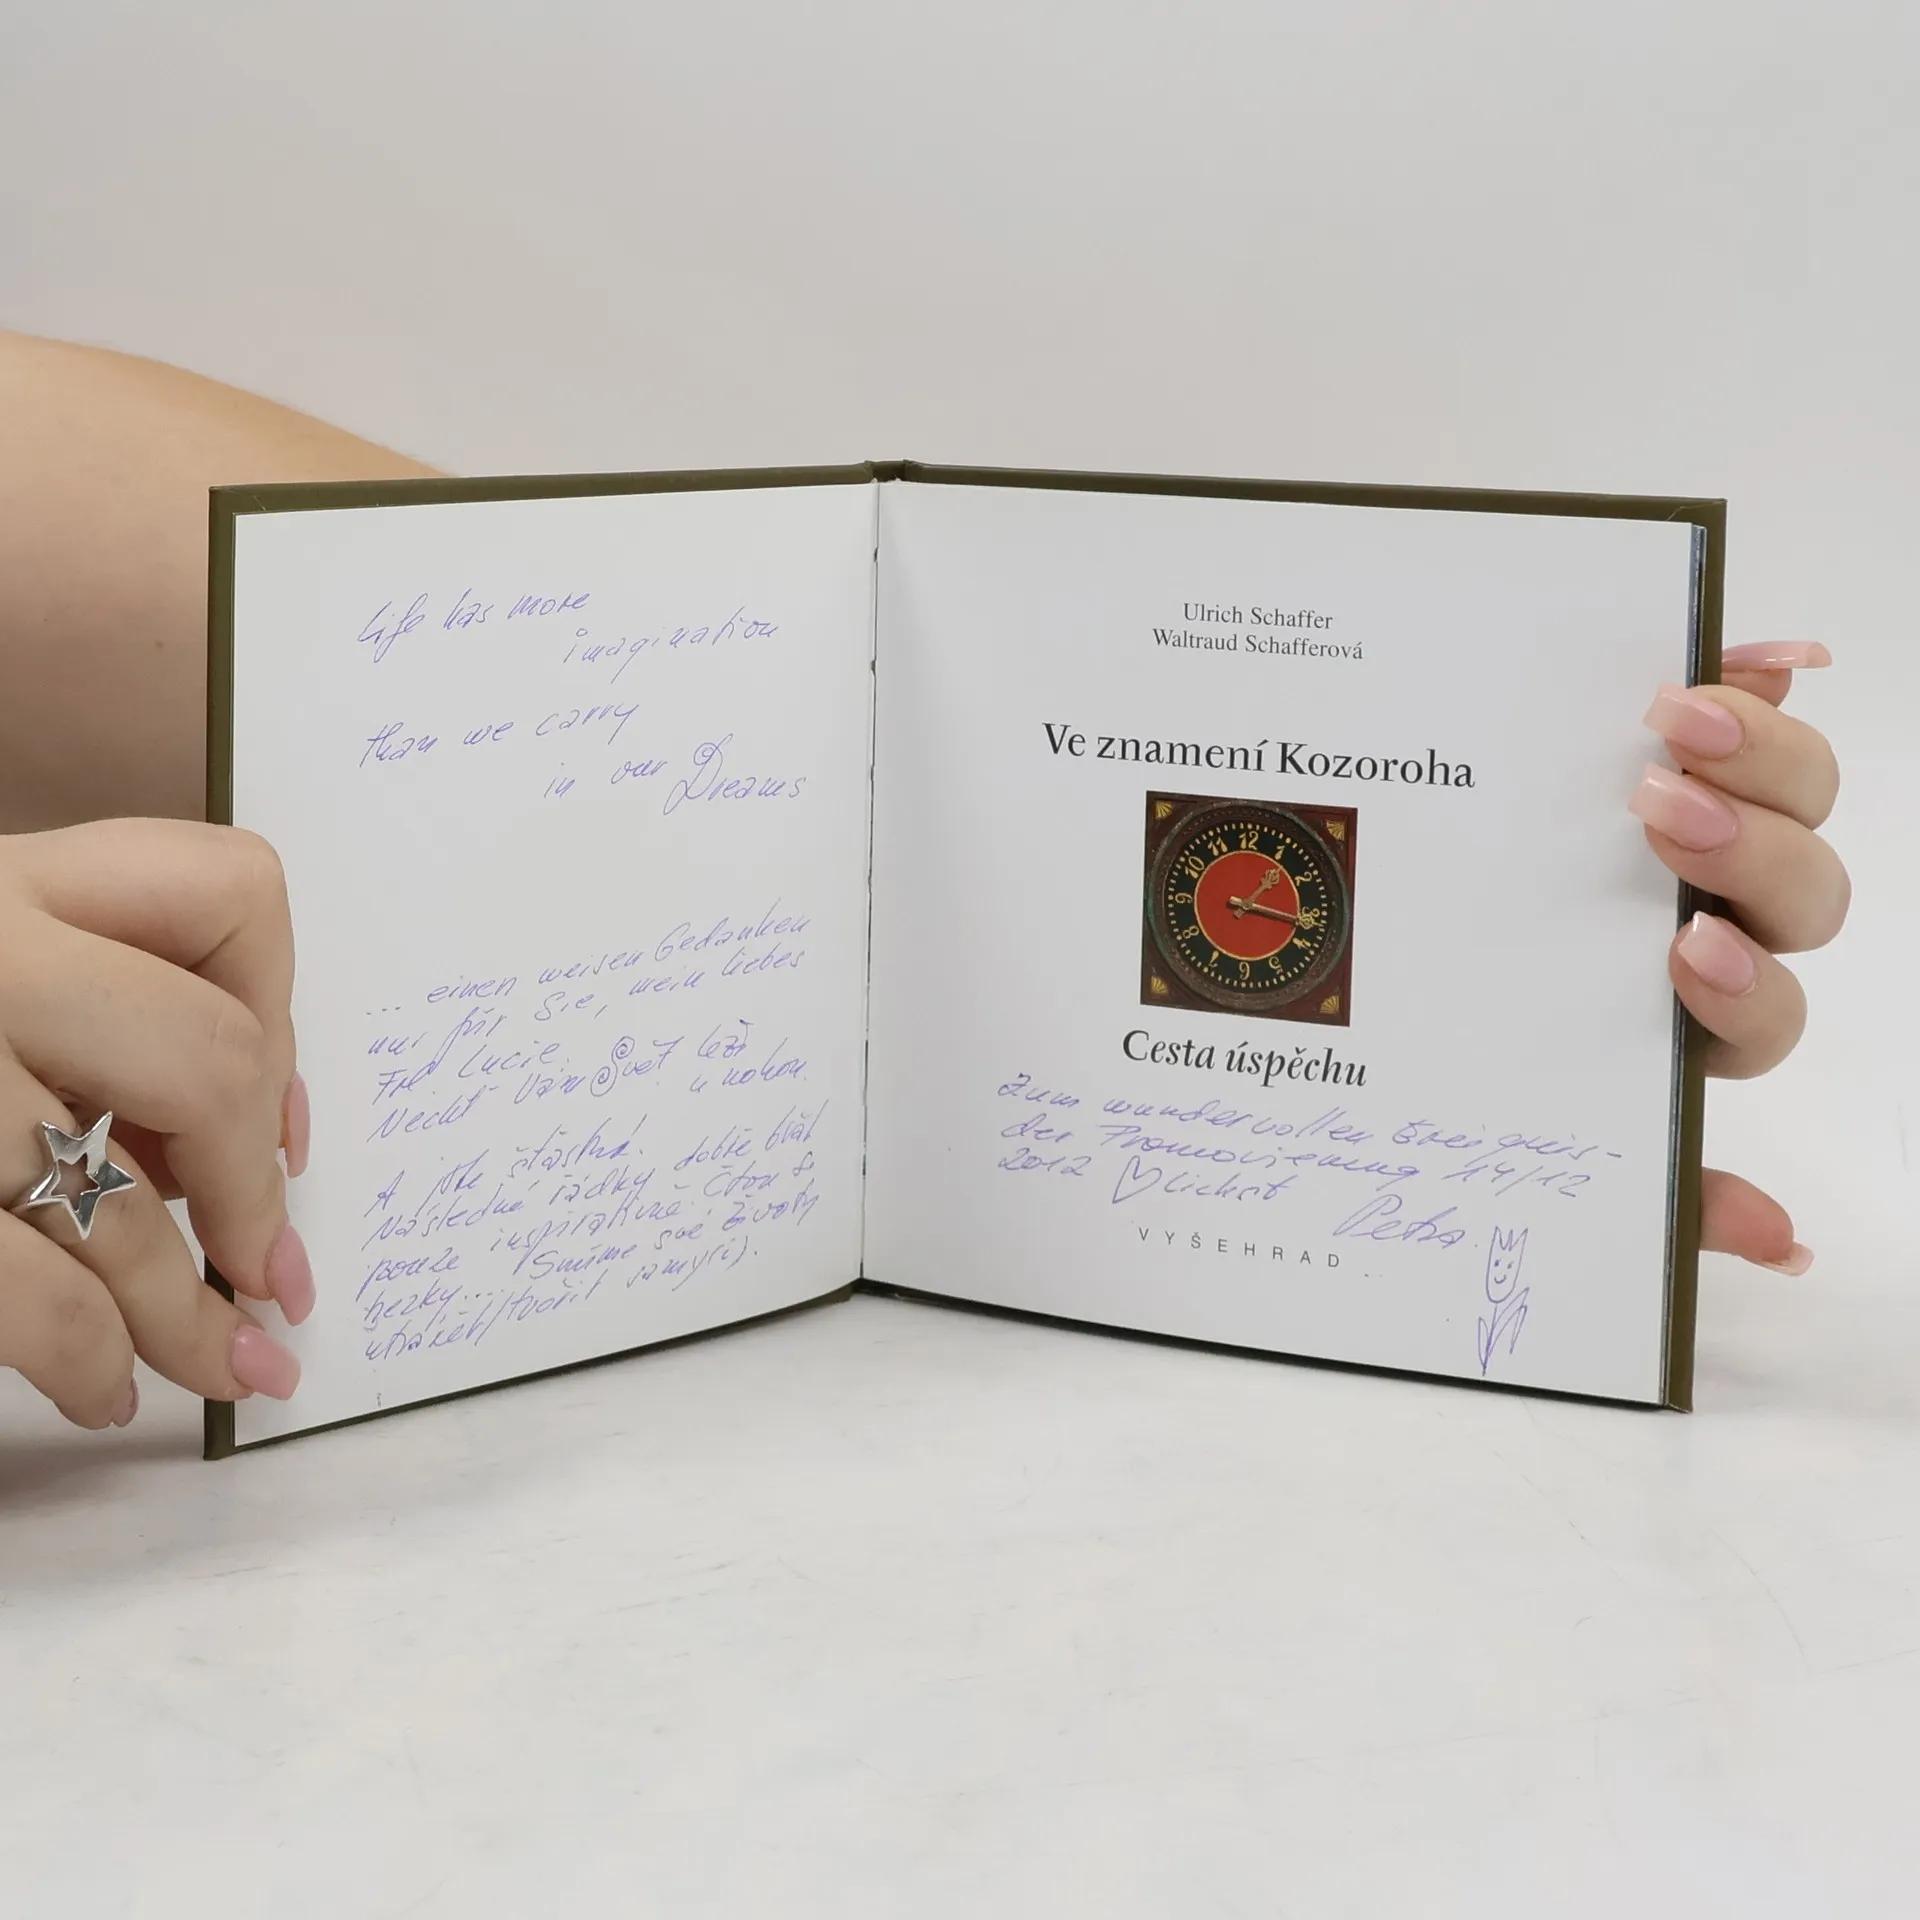 Life has more
imagination
than we carry
in our Dreams
... einen weisen Gedanken
nur für Sie, mein liebes
Frl Lucie.
Nechť Vám Svět leží
u nohou.
A jste šťastná.
Následné řádky dobře brát
pouze inspirativně. Čtou se
hezky.... Smíme své životy
utvářet/tvořit samy(i).
Ulrich Schaffer
Waltraud Schafferová
Ve znamení Kozoroha
12
1
2
3
4
5
6
7
8
9
10
11
Cesta úspěchu
Zum wundervollen Ereignis-
der Promovierung 14/12
2012 lichst
Petra.
VYŠEHRAD